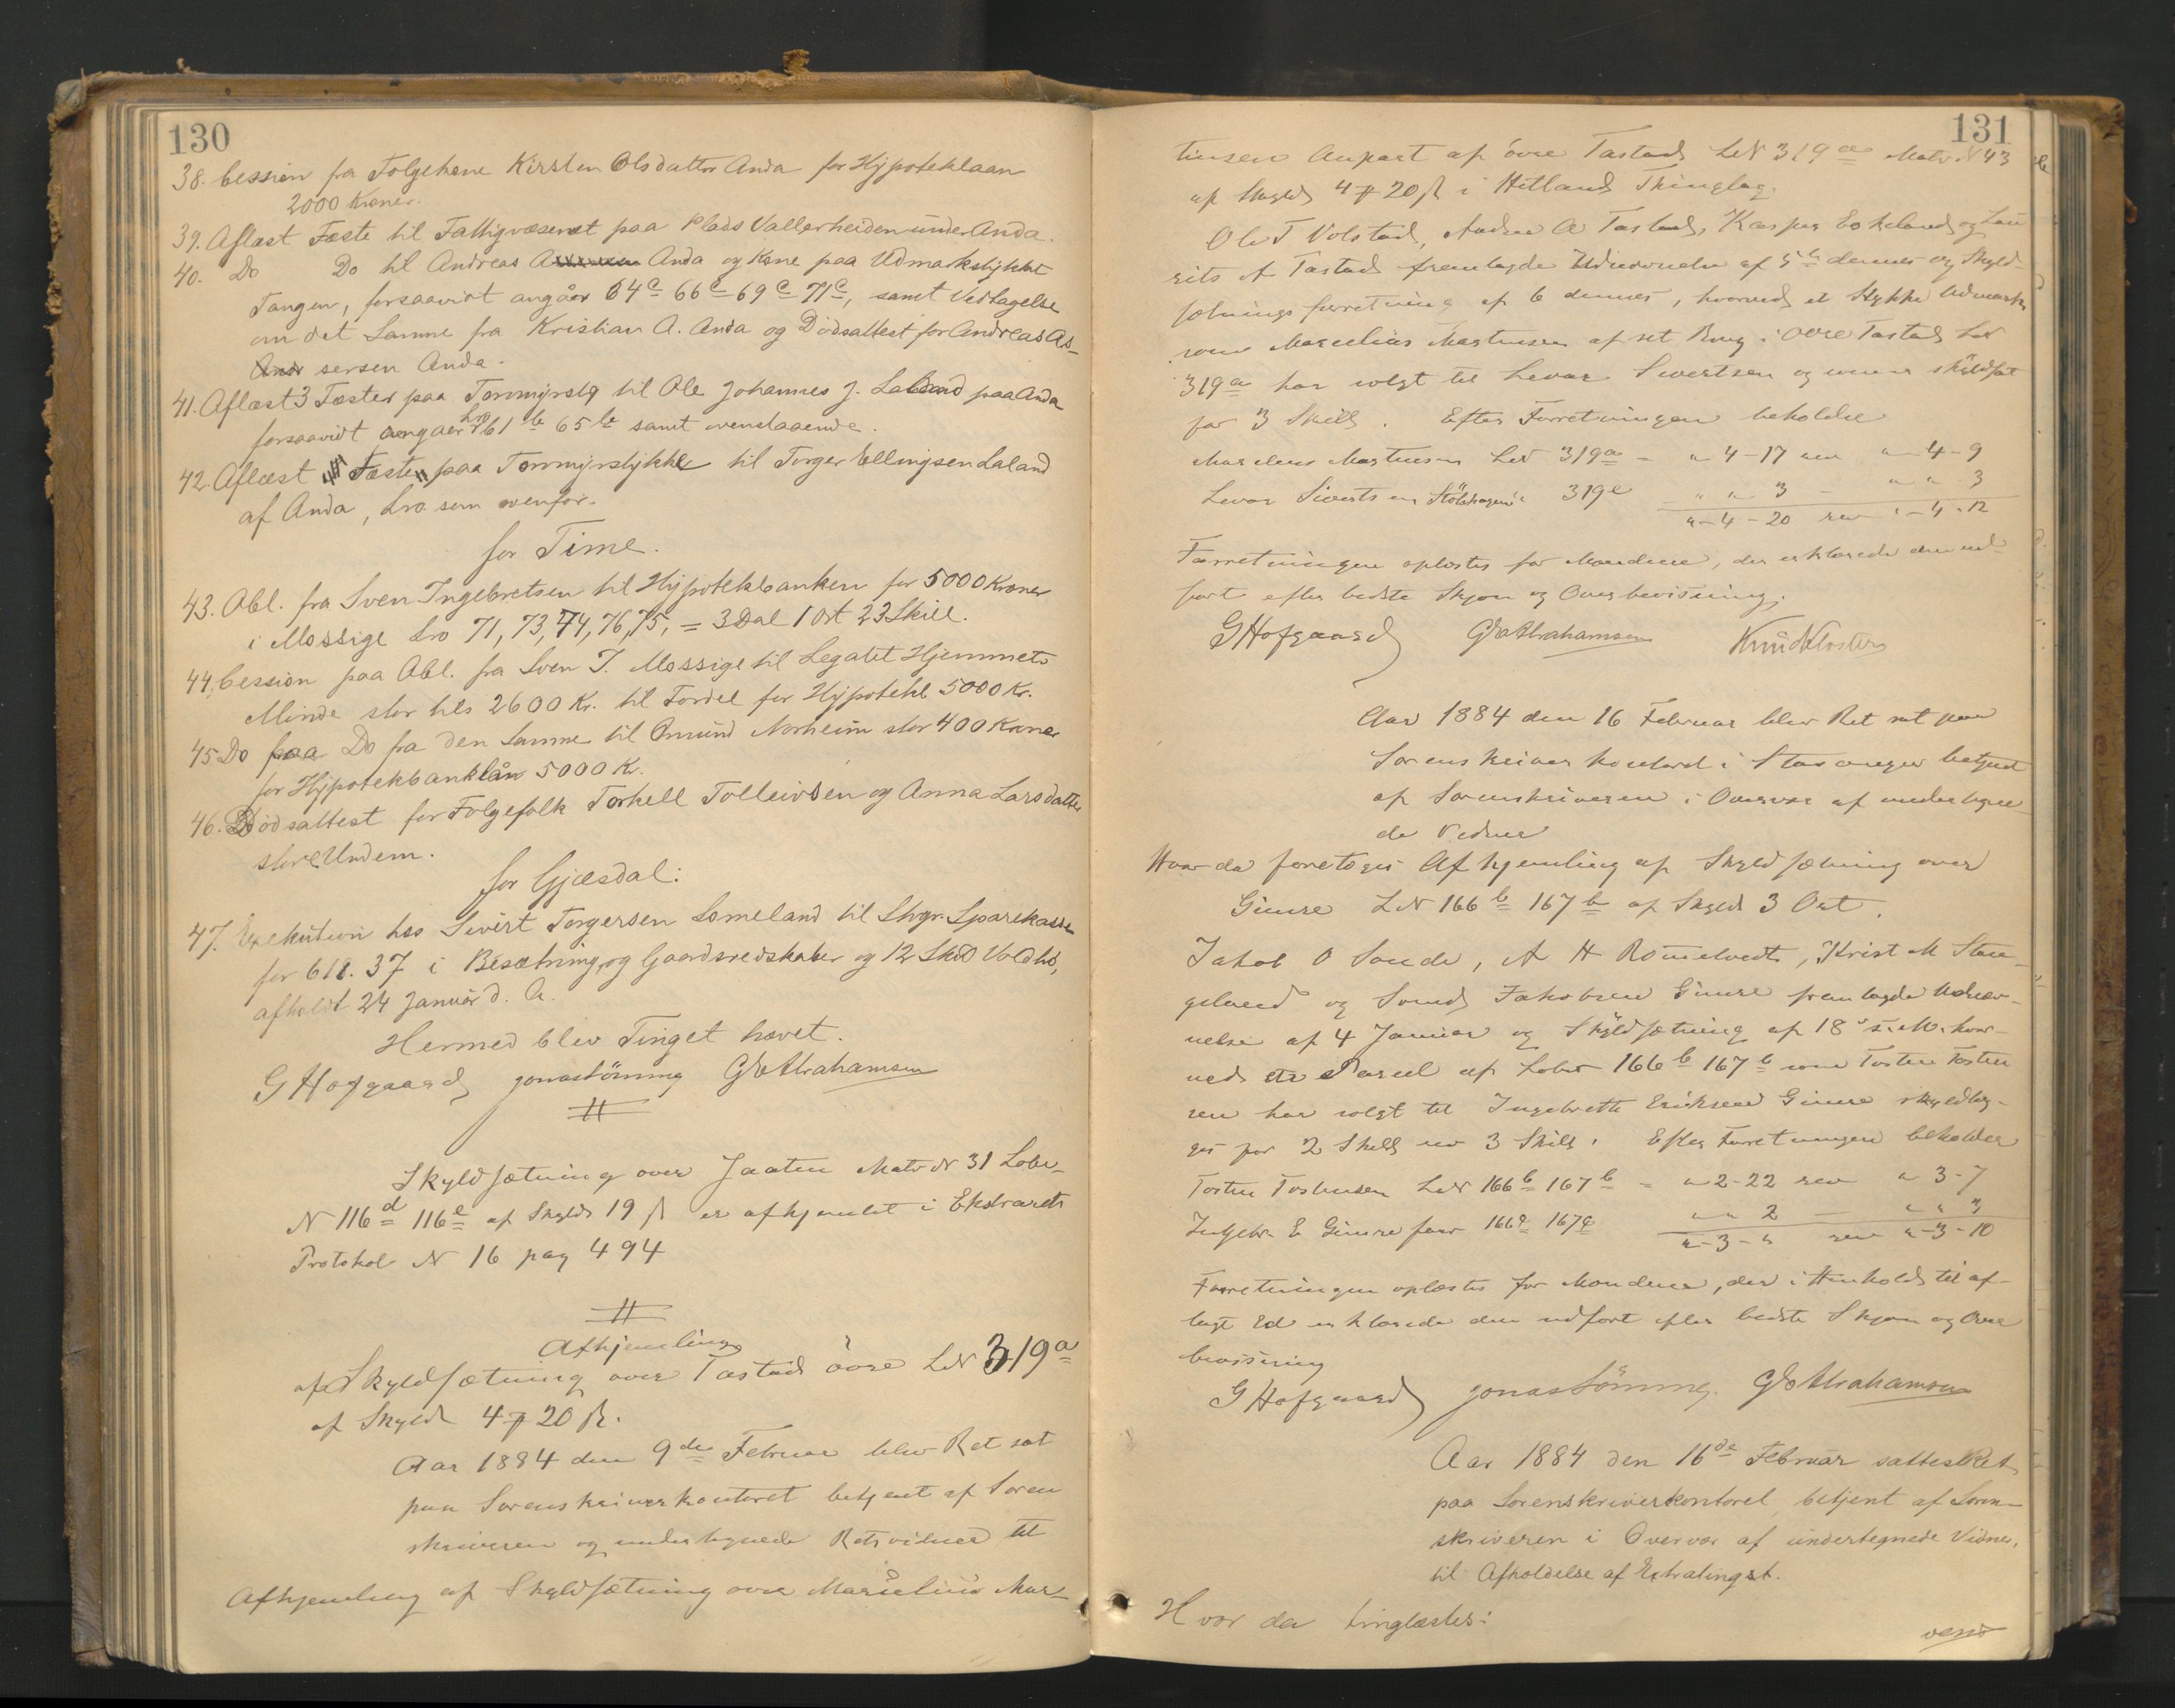 130
38. Cession fra Folgekone Kirsten Olsdatter Anda for Hypoteklaan
2000 Kroner.
39. Aflæst Fæste til Fattigvæsenet paa Plads Vallerheiden under Anda.
40. Do Do til Andreas A Anda og Kone paa Udmarkstykket
Tangen, forsaavidt angåer 64c 66c 69c 71c, samt Vedtagelse
om det Samme fra Kristian A. Anda og Dödsattest for Andreas As-
sersen Anda.
41. Aflæst 3 Fæster paa Torvmyrstg til Ole Johannes J. Laland paa Anda
forsaavidt angaer Lro 61 b 65 b samt ovenstaaende.
42. Aflæst Fæste paa Torvmyrstykke til Torger Ellingsen Laland
af Anda, Lro som ovenfor.
for Time.
43. Obl. fra Sven Ingebretsen til Hypotekbanken for 5000 Kroner
i Mossige Lro 71, 73, 74, 76, 75, = 3 Dal 1 Ort 23 Skill.
44. Cession paa Obl. fra Sven I. Mossige til Legatet Hjemmets
Minde stor tils 2600 Kr. til Fordel for Hypotekl 5000 Kr.
45 Do paa Do fra den Samme til Omund Norheim stor 400 Kroner
for Hypotekbanklån 5000 Kr.
46. Dödsattest for Folgefolk Torkell Tolleivsen og Anna Larsdatter
store Undem.
for Gjæsdal:
47. Exekution hos Sivert Torgersen Lomeland til Stvgr. Sparekasse
for 618. 37 i Besætning og Gaardsredskaber og 12 Skd Voldhö,
afholdt 24 Januar d. A.
Hermed blev Tinget hævet.
G Hofgaard Jonas Lönning G Abrahamsen
Skyldsætning over Jaatten Matr N 31 Løbe-
N 116d 116e af Skyld 19 ß er afhjemlet i Ekstrarets
Protokol N 16 pag 494
Afhjemling
af Skyldsætning over Tastad övre LN 319a
af Skyld 4 20 ß.
Aar 1884 den 9de Februar blev Ret sat
paa Sorenskriverkontoret betjent af Soren
skriveren og undertegnede Retsvidner til
Afhjemling af Skyldsætning over Marselius Mar-
131
tinsen Anpart af övre Tastad LN 319a Matr N 43
af Skyld 4 20 ß i Hetland Thinglag.
Ole T Volstad, Andreas A Tastad, Kasper Eskeland og Lau
rits A Tastad fremlagde Udnævnelse af 5te dennes og Skyld-
sætningsforretning af 6 dennes, hvorved et Stykke Udmark,
som Marselius Martinsen af sit Brug i Övre Tastad LN
319a har solgt til Levar Sivertsen og svares skyldsat
for 3 Skill. Efter Forretningen beholder
Marselius Martinsen LN 319a - " 4-17 rev " 4-9
Levar Sivertsen Stölshagen 319e " " 3 - " " 3
"-4-20 rev "-4-12
Forretningen oplæstes for Mændene, der erklærede den ud-
fört efter bedste Skjøn og Overbevisning.
G Hofgaard G Abrahamsen Knud Kloster
Aar 1884 den 16 Februar blev Ret sat paa
Sorenskriverkontoret i Stavanger betjent
af Sorenskriveren i Overvær af undertegne
de Vidner
Hvor da foretoges Afhjemling af Skyldsætning over
Gimre LN 166b 167b af Skyld 3 Ort.
Jakob O Sande, A H Romelvedt, Krist M Stan-
geland og Svend Jakobsen Gimre fremlagde Udnæv-
nelse af 4 Januar og Skyldsætning af 18 s. M. hvor-
ved en Parcel af Løbn 166b 167b som Tosten Tosten
sen har solgt til Ingebreth Eriksen Gimre skyldlæg-
ges for 2 Skill rev 3 Skill. Efter Forretningen beholder
Tosten Tostensen LN 166b 167b = " 2-22 rev " 3-7
Ingebr. E Gimre faar 166 167 " " 2 - " " 3
"-3-" rev "-3-10
Forretningen oplæstes for Mændene, der i Henhold til af-
lagt Ed erklærede den udfört efter bedste Skjøn og Over
bevisning
G Hofgaard Jonas Lönning. G Abrahamsen
Aar 1884 den 16de Februar sattes Ret
paa Sorenskriverkontoret betjent af Soren-
skriveren i Overvær af undertegnede Vidner,
til Afholdelse af Extratinget.
Hvor da tinglæstes: